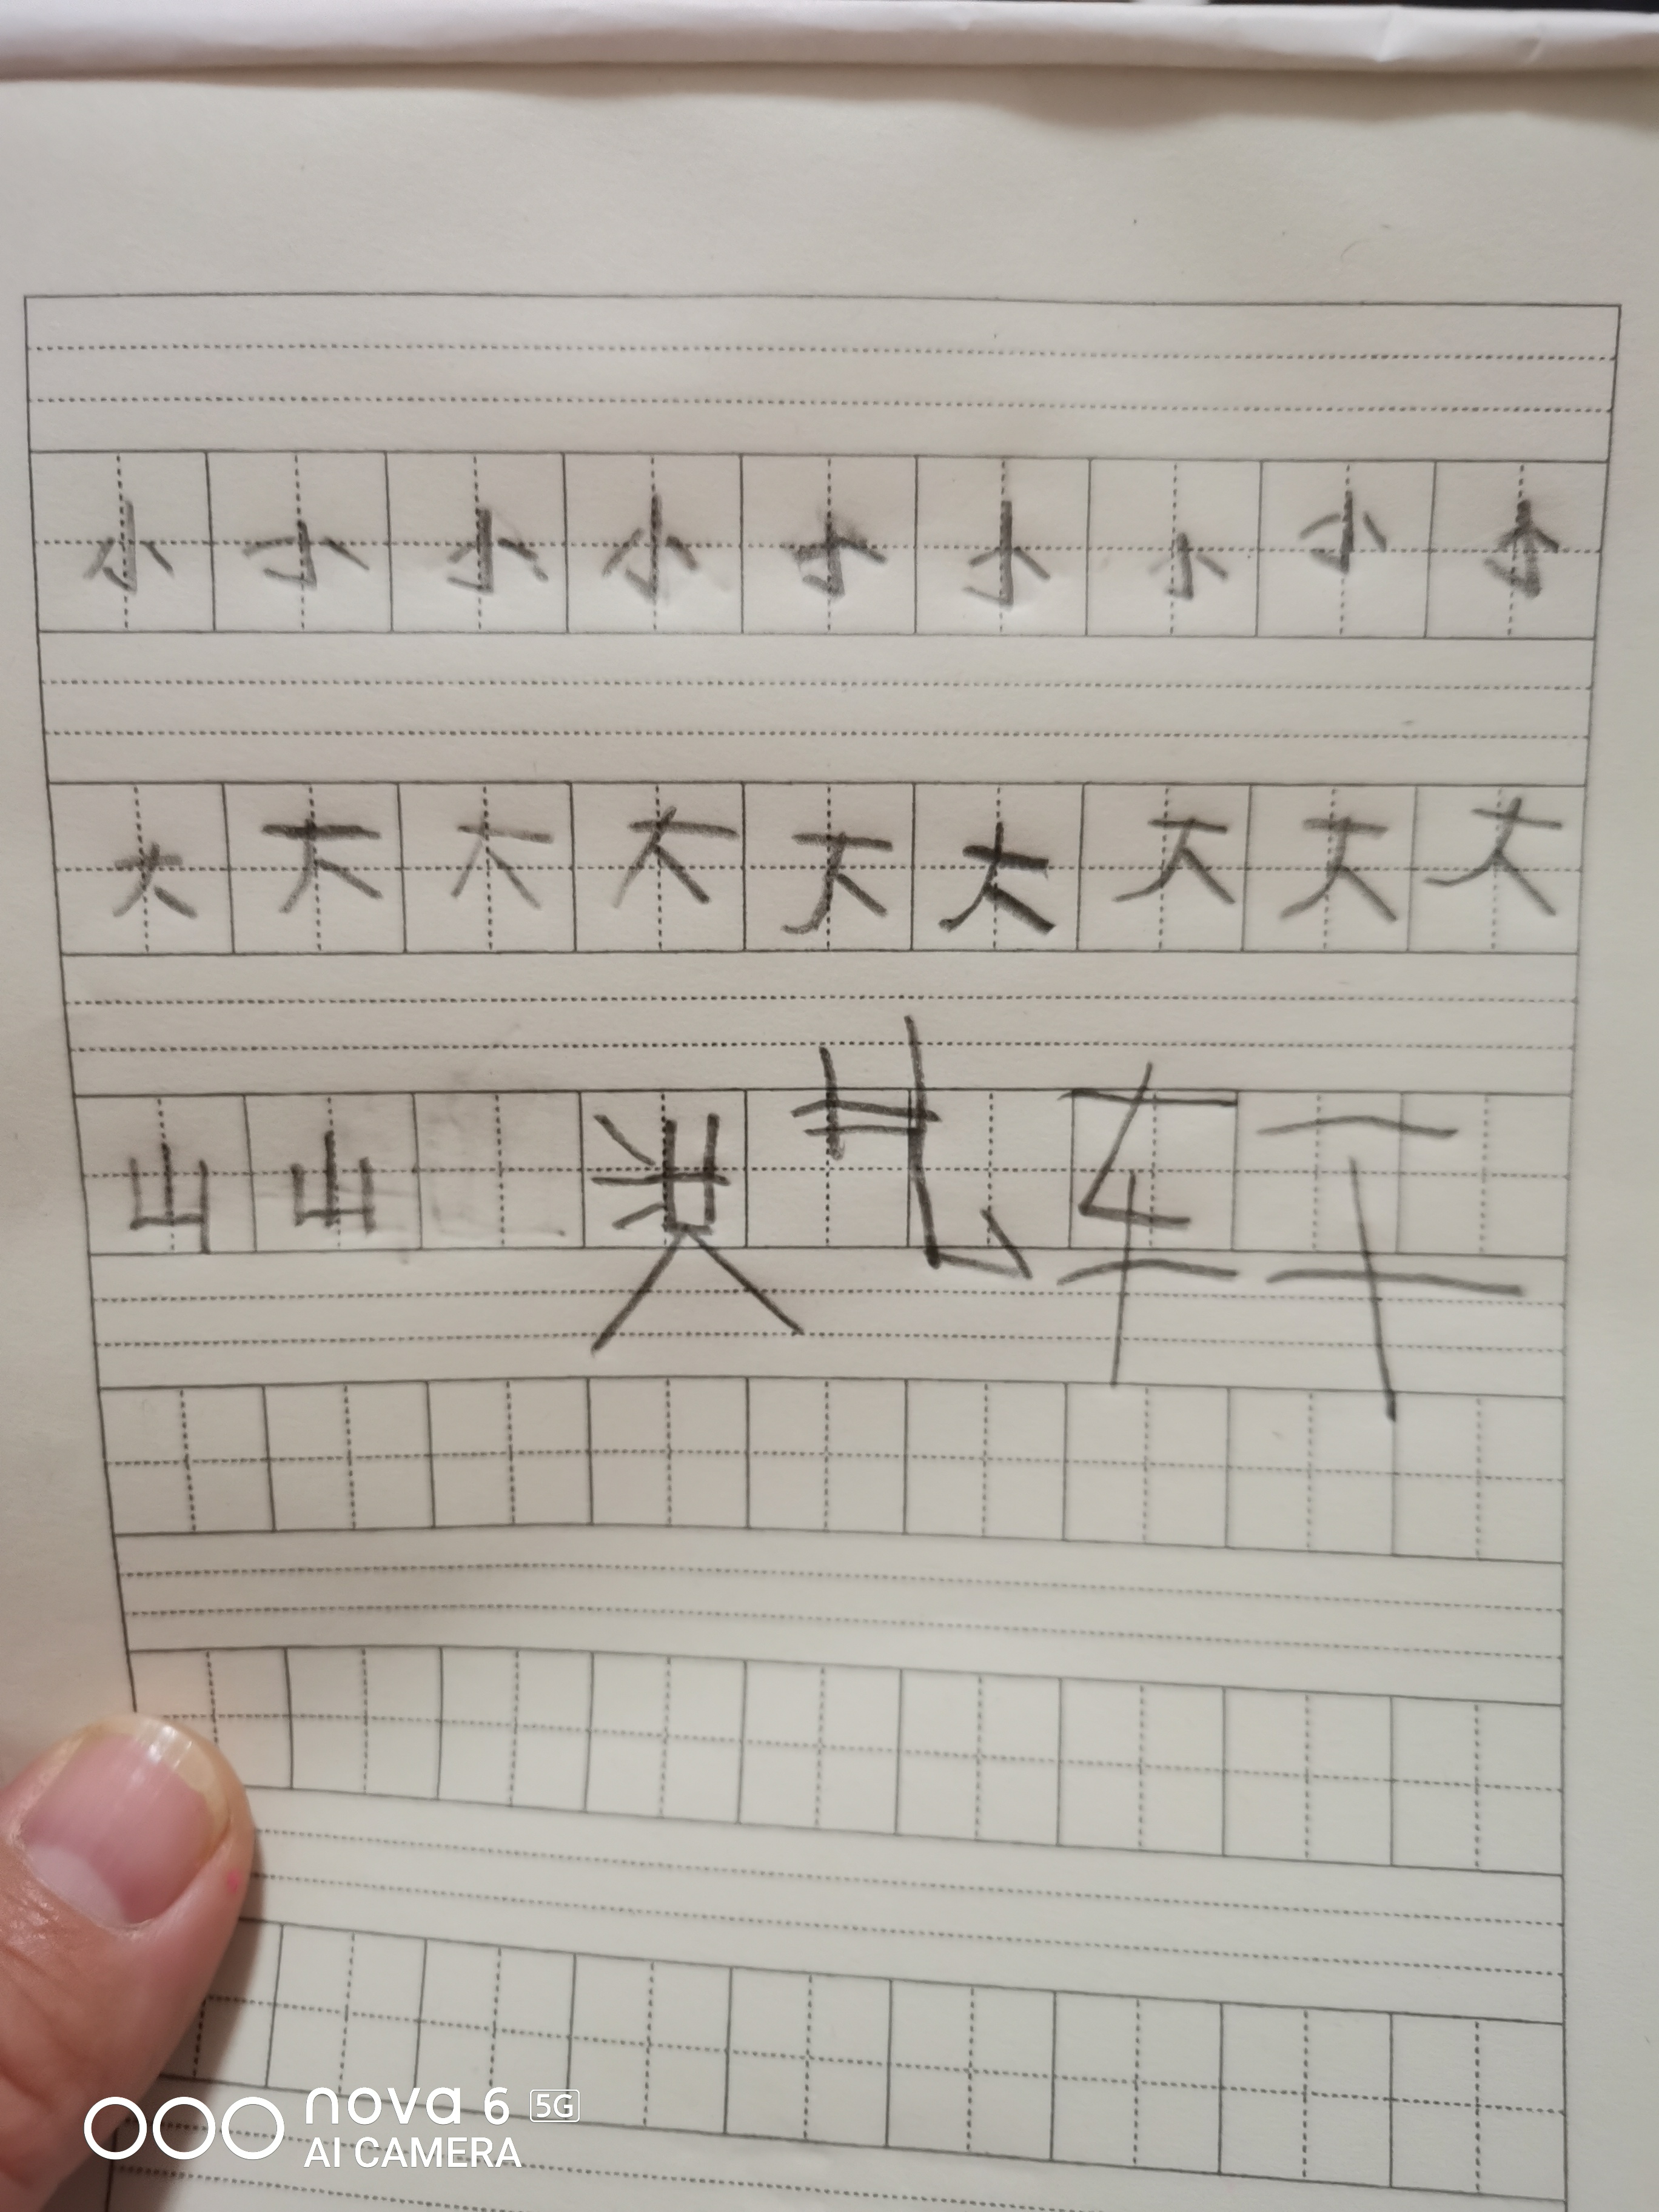 小小小小小小小小小
大大大大大大大大大
山山
nova 6 5G
AI CAMERA